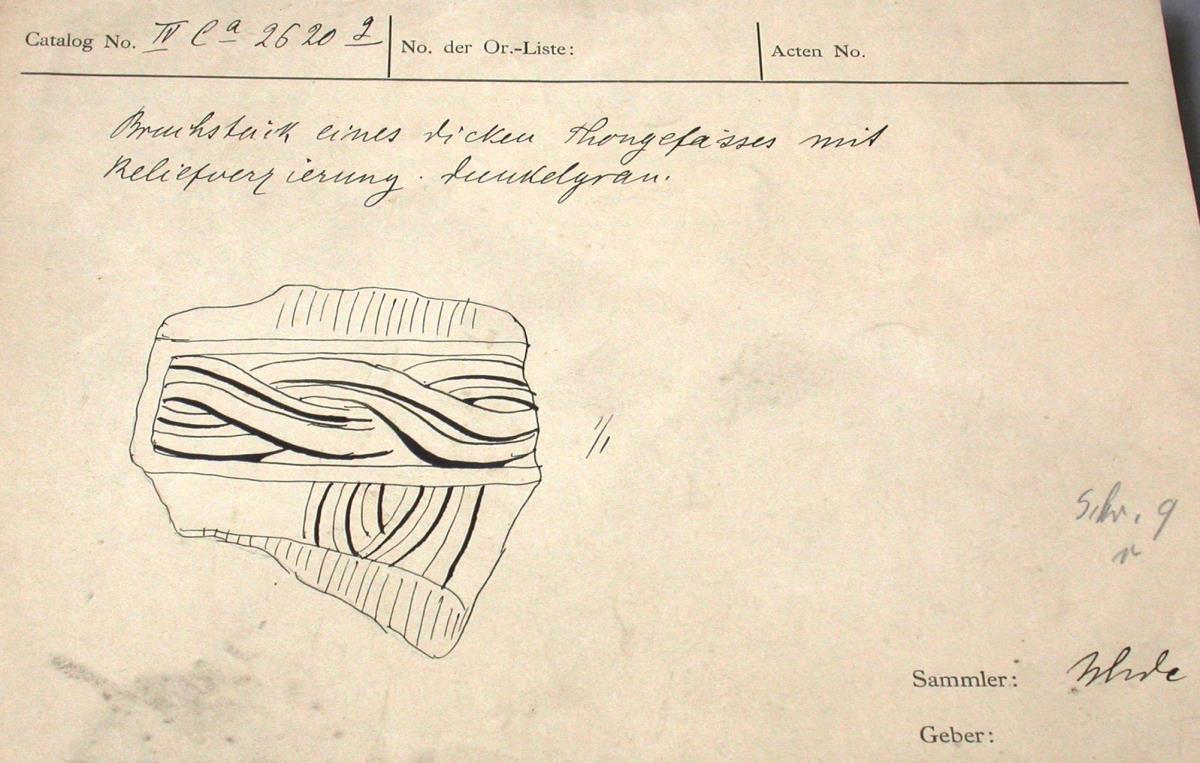 Catalog No. IV Ca 2620 g No. der Or.-Liste: Acten No.
Bruchstück eines dicken Thongefässes mit
Reliefverzierung. dunkelgrau.
1/1
Schr. 9
Sammler: Uhde
Geber: